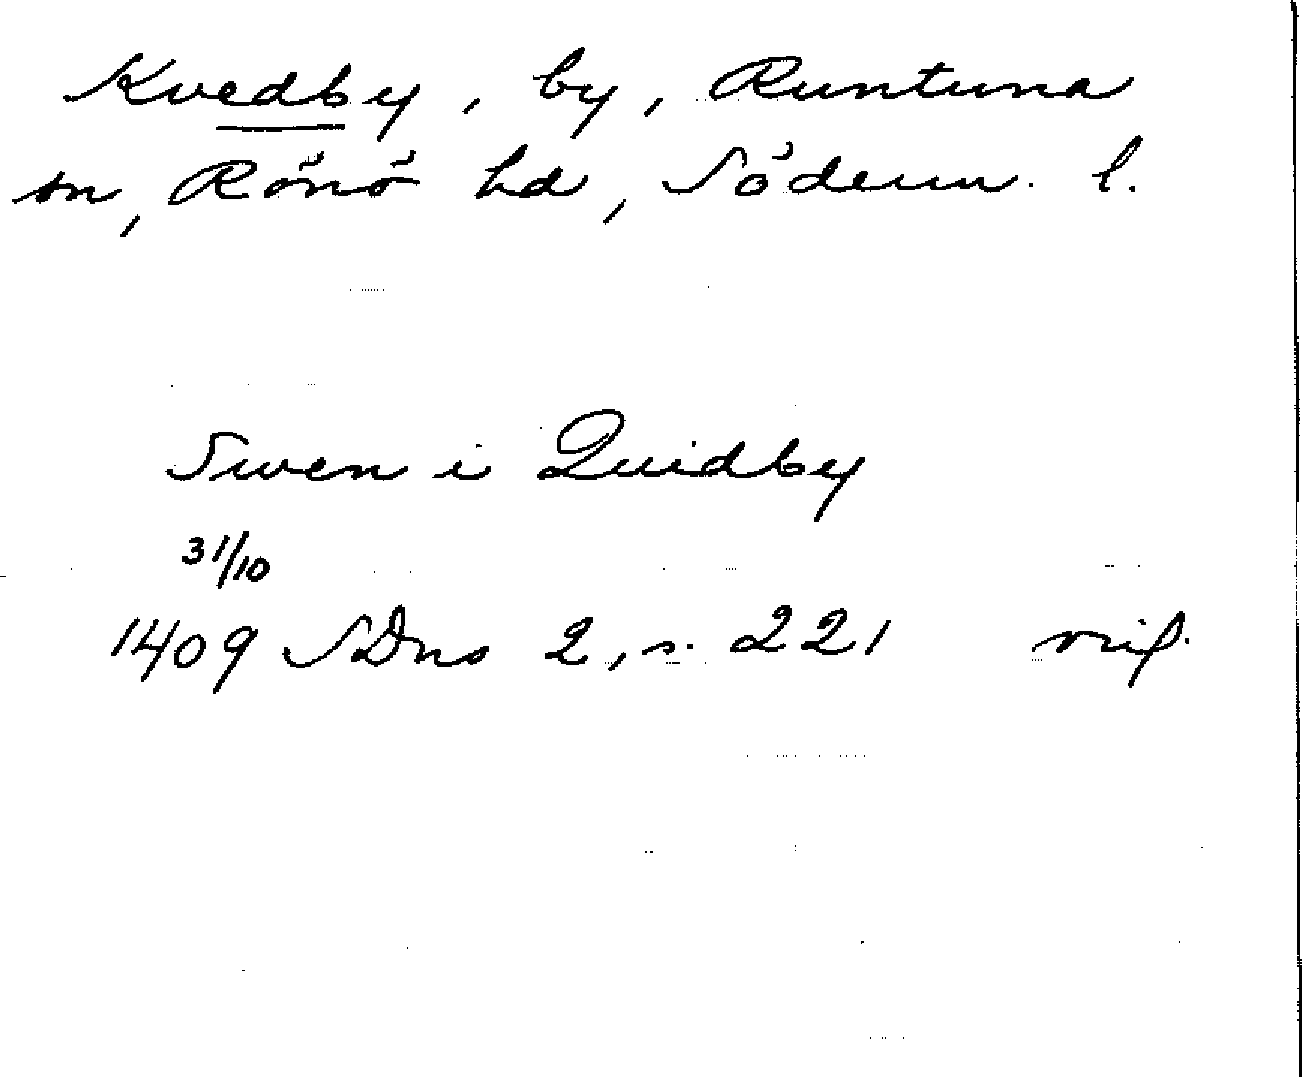 Kvedby, by, Runtuna
sn, Rönö hd, Söderm. l.
Swen i Quidby
31/10
1409 SDns 2, s. 221 orig.